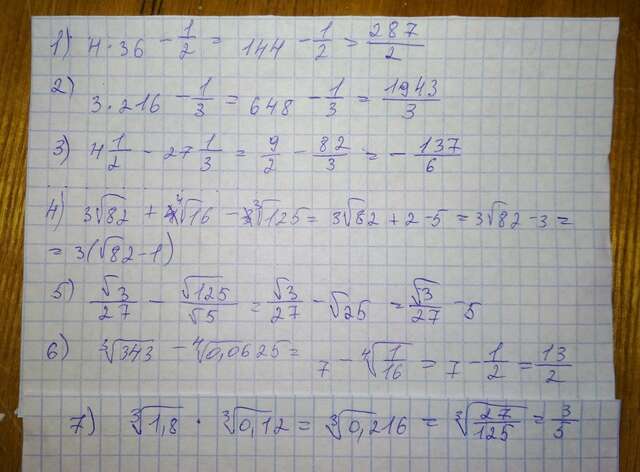 1) 4·36 - 1/2 = 144 - 1/2 = 287/2
2) 3·216 - 1/3 = 648 - 1/3 = 1943/3
3) 4 1/2 - 27 1/3 = 9/2 - 82/3 = - 137/6
4) 3√82 + ∜16 - ∛125 = 3√82 + 2 - 5 = 3√82 - 3 =
= 3(√82 - 1)
5) √3/27 - √125/√5 = √3/27 - √25 = √3/27 - 5
6) ∛343 - ∜0,0625 = 7 - ∜(1/16) = 7 - 1/2 = 13/2
7) ∛1,8 · ∛0,12 = ∛0,216 = ∛(27/125) = 3/5